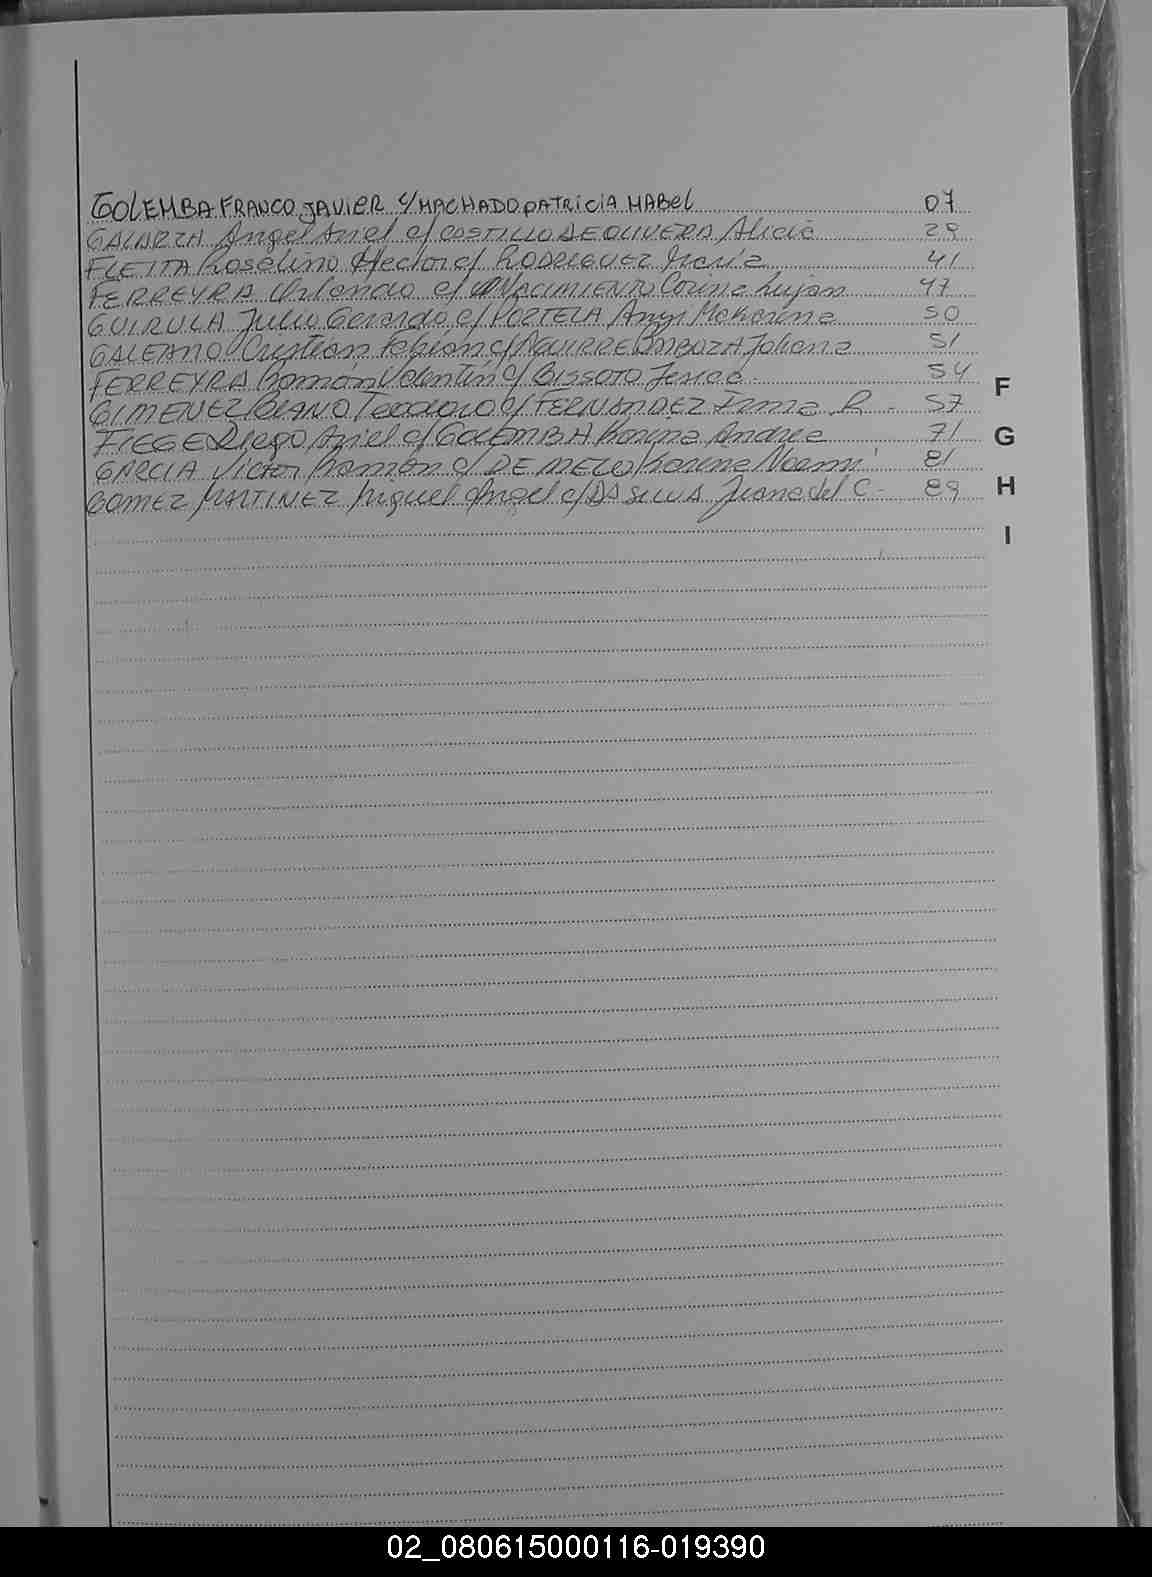 GOLEMBA FRANCO JAVIER c/ MACHADO PATRICIA MABEL 07
GALARZA Angel Ariel c/ COSTILLO DE OLIVERA Alicia 29
FLEITA Roselino Hector c/ RODRIGUEZ María 41
FERREYRA Orlando c/ NACIMIENTO Corina Lujan 47
GUIRULA Julio Gerardo c/ PORTELA Angi Makarena 50
GALEANO Cristian Fabian c/ AGUIRRE BARBOZA Johana 51
FERREYRA Román Valentin c/ BISSOTO Jesica 54
GIMENEZ Teodoro c/ FERNANDEZ Irma R. 57
FIEGE Diego Ariel c/ GOLEMBA Karina Andrea 71
GARCIA Victor Román c/ DE MELO Karina Noemi 81
GOMEZ MARTINEZ Miguel Angel c/ DA SILVA Juana del C. 89
F
G
H
I
02_080615000116-019390